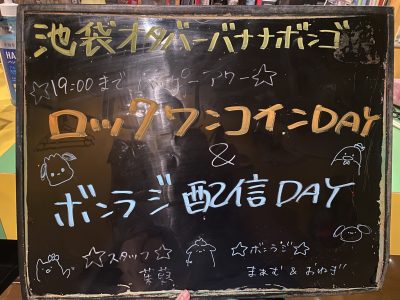 池袋オタバーバナナボンゴ
☆19:00までハッピーアワー☆
ロックワンコインDAY
&
ボンラジ配信DAY
☆スタッフ☆ ☆ボンラジ☆
まぁむ&おねぎ